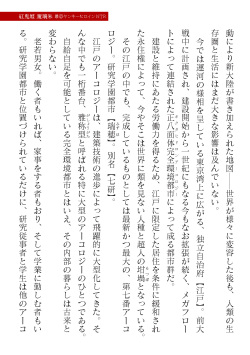 紅鬼姫 麗羅朱 東京ヤンキーヒロインNTR
動により新大陸が書き加えられた地図――世界が様々に変容した後も、人類の生
存圏と生活にはまださほど影響は及んでいない。
今では運河の様相を呈している東京湾上に広がる、独立自治府【江戸】。前大
戦中に計画され、建設開始から一世紀にもなる今もなお拡張が続く、メガフロー
トによって連結された正六角形型の完全環境都市によって成る都市群だ。
建設と維持にあたる労働力を得るため、ここに限定した居住を条件に緩和され
た永住権によって、今やそこは世界でも類のない人種と超人の坩堝となっている。
その江戸の中でも、現在完成しているものとしては最新かつ最大の、第七番アーコ
ロジー。研究学園都市【瑞穂】、別名【七研】。
江戸のアーコロジーは、建築技術の進歩によって飛躍的に大型化してきた。そ
んな中でも一桁番台、雅称型と呼ばれる十の大型のアーコロジーのひとつである。
自給自足を可能としている完全環境都市だが、その内部の暮らしは古来と
変わらない。
老若男女、働く者もいれば、家事をする者もおり、そして学業に勤しむ者もい
る。研究学園都市と位置づけられているだけに、研究従事者と学生は他のアーコ